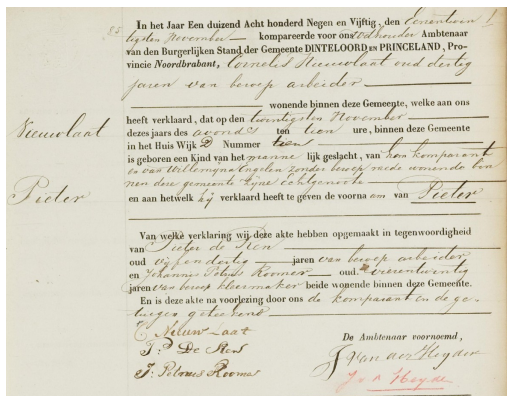 85
In het Jaar Een duizend Acht honderd Negen en Vijftig, den Eenentwin
tigsten November kompareerde voor ons Wethouder Ambtenaar
van den Burgerlijken Stand der Gemeente DINTELOORD EN PRINCELAND, Pro-
vincie Noordbrabant, Cornelis Nieuwlaat oud dertig
jaren van beroep arbeider
wonende binnen deze Gemeente, welke aan ons
heeft verklaard, dat op den twintigsten November
dezes jaars des avonds ten tien ure, binnen deze Gemeente
in het Huis Wijk D Nummer tien
is geboren een Kind van het manne lijk geslacht, van hem komparant
en van Willemyna Engelen zonder beroep mede wonende bin
nen deze gemeente zyne echtgenoote
en aan hetwelk hij verklaard heeft te geven de voorna am van Pieter
Nieuwlaat
Pieter
Van welke verklaring wij deze akte hebben opgemaakt in tegenwoordigheid
van Pieter de Ren
oud vijfendertig jaren van beroep arbeider
en Johannis Petrus Roomer oud vierentwintig
jaren van beroep kleermaker beide wonende binnen deze Gemeente.
En is deze akte na voorlezing door ons de komparant en de ge-
tuigen geteekend
C Nieuw Laat
P: De Ren
J: Petrus Roomer
De Ambtenaar voornoemd,
J van der Heyden